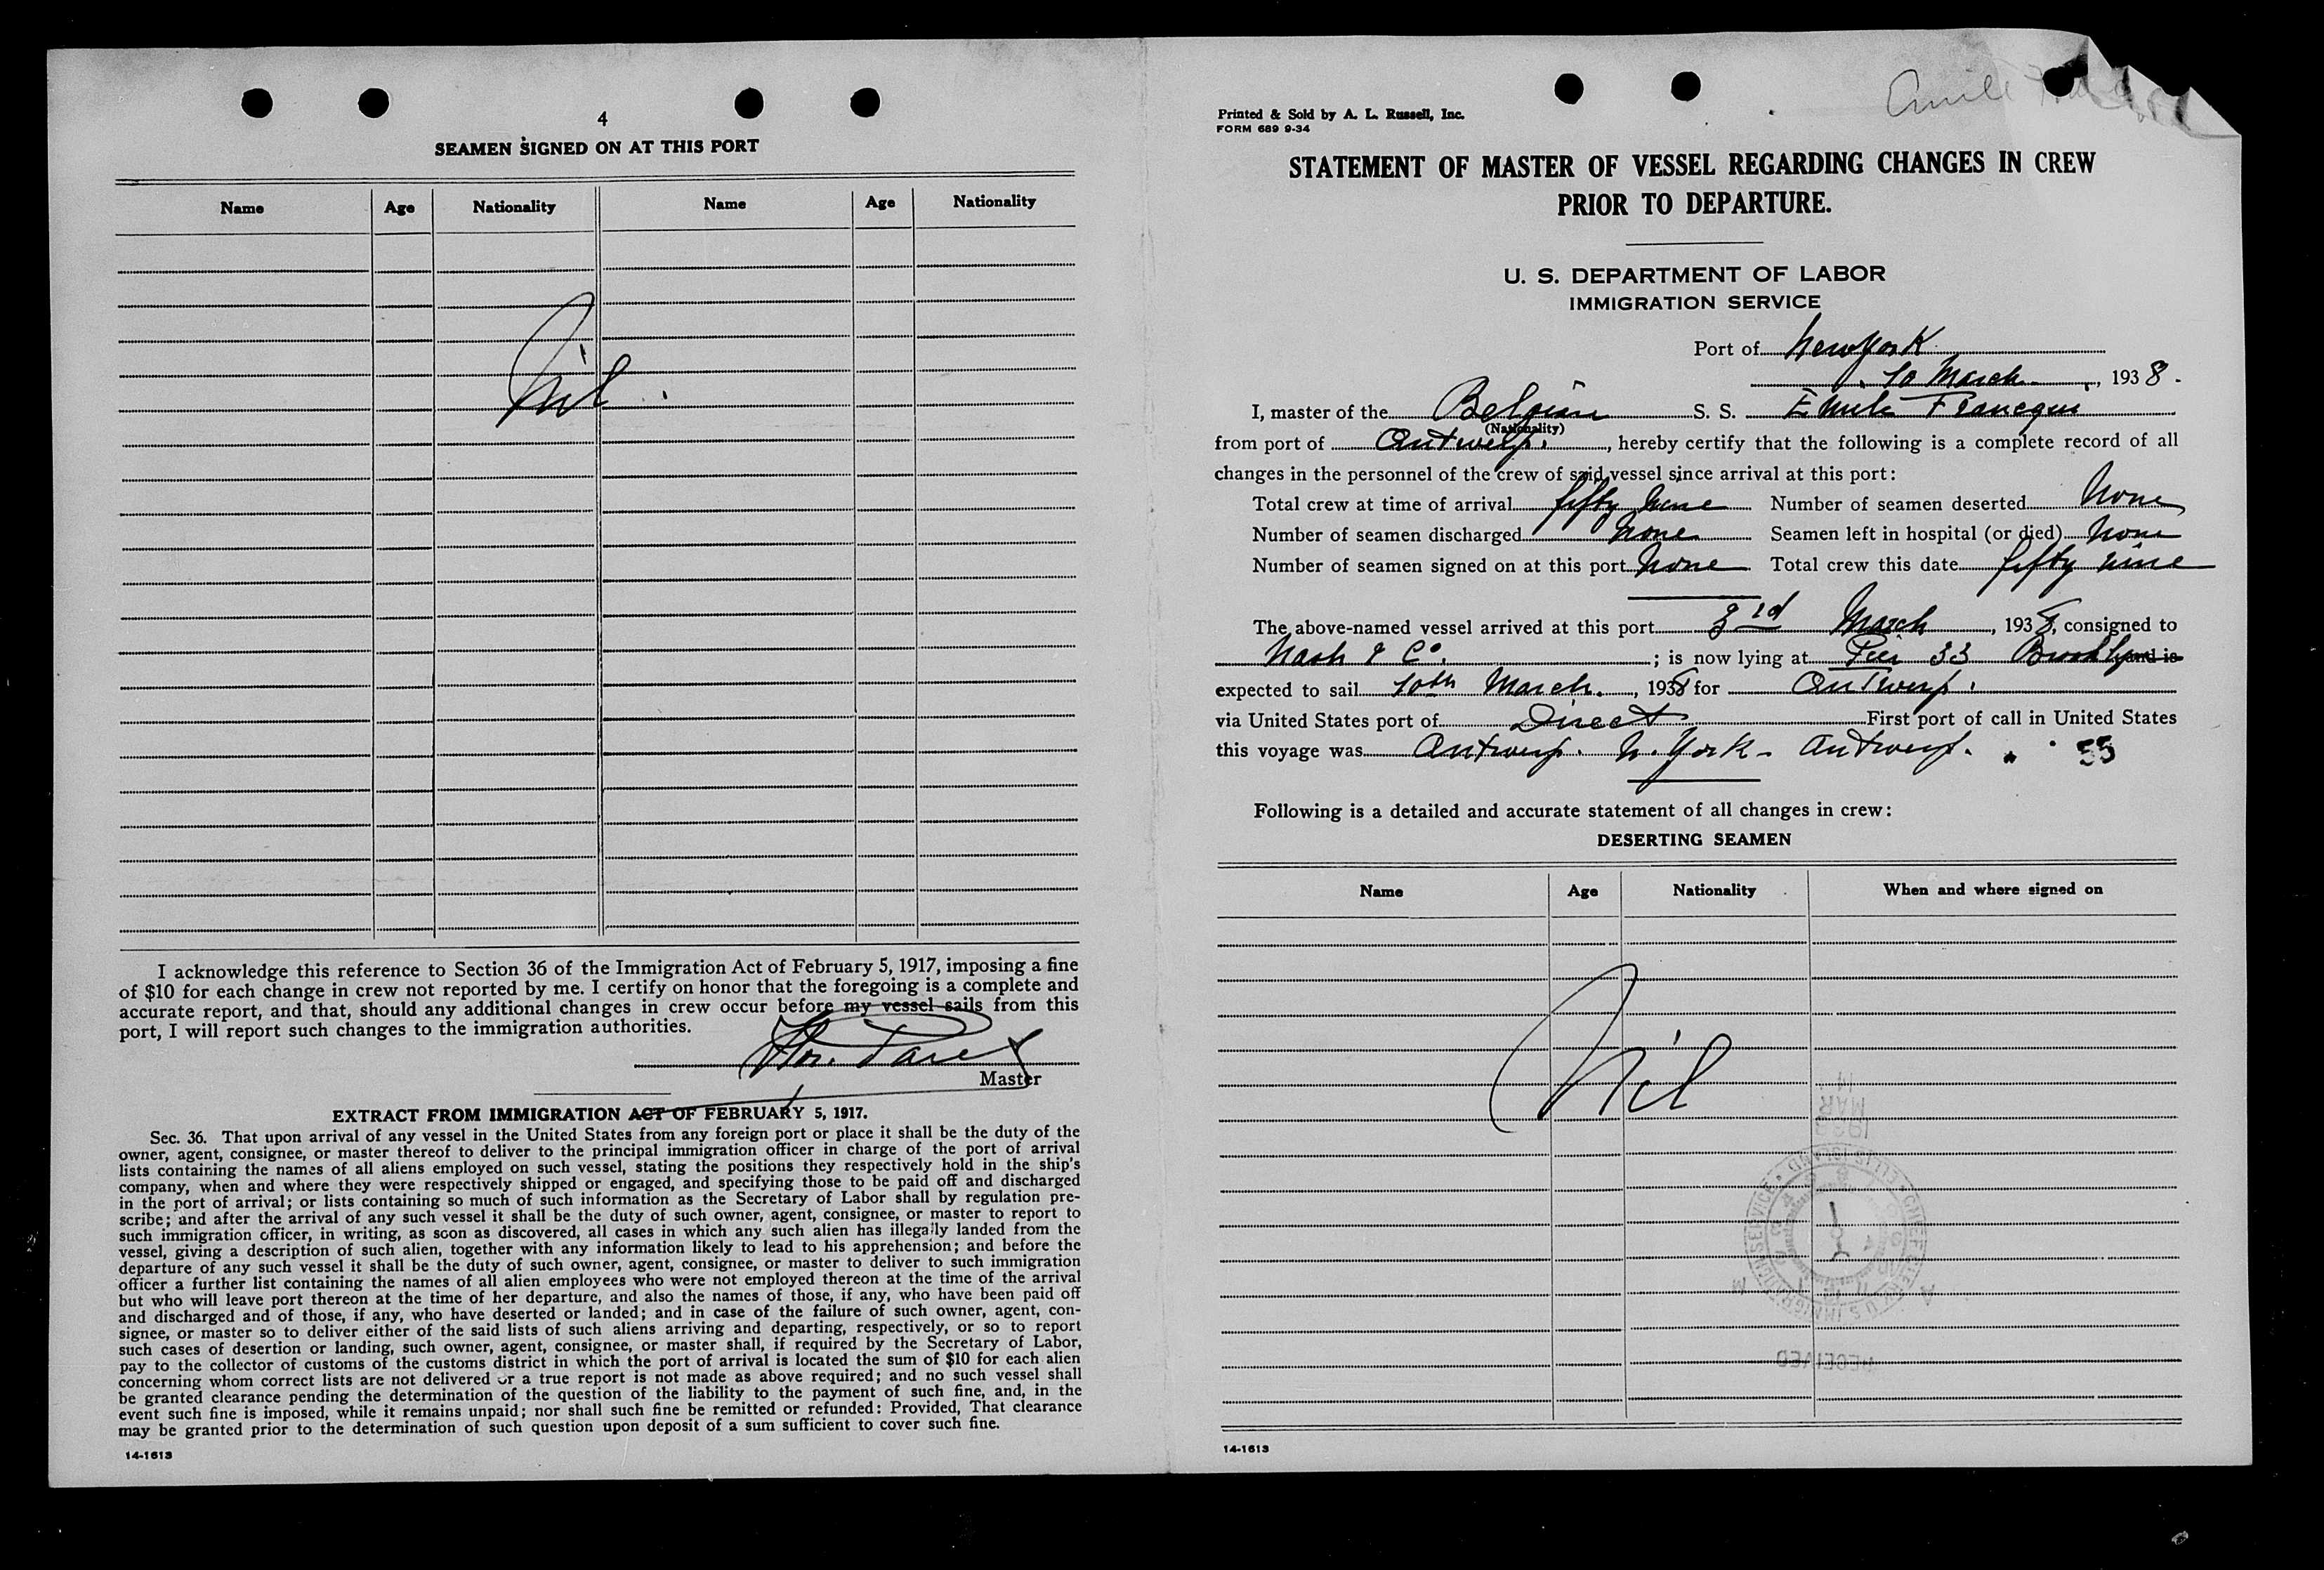 4
SEAMEN SIGNED ON AT THIS PORT
Name Age Nationality Name Age Nationality
Nil
I acknowledge this reference to Section 36 of the Immigration Act of February 5, 1917, imposing a fine
of $10 for each change in crew not reported by me. I certify on honor that the foregoing is a complete and
accurate report, and that, should any additional changes in crew occur before my vessel sails from this
port, I will report such changes to the immigration authorities.
Master
EXTRACT FROM IMMIGRATION ACT OF FEBRUARY 5, 1917.
Sec. 36. That upon arrival of any vessel in the United States from any foreign port or place it shall be the duty of the
owner, agent, consignee, or master thereof to deliver to the principal immigration officer in charge of the port of arrival
lists containing the names of all aliens employed on such vessel, stating the positions they respectively hold in the ship's
company, when and where they were respectively shipped or engaged, and specifying those to be paid off and discharged
in the port of arrival; or lists containing so much of such information as the Secretary of Labor shall by regulation pre-
scribe; and after the arrival of any such vessel it shall be the duty of such owner, agent, consignee, or master to report to
such immigration officer, in writing, as soon as discovered, all cases in which any such alien has illegally landed from the
vessel, giving a description of such alien, together with any information likely to lead to his apprehension; and before the
departure of any such vessel it shall be the duty of such owner, agent, consignee, or master to deliver to such immigration
officer a further list containing the names of all alien employees who were not employed thereon at the time of the arrival
but who will leave port thereon at the time of her departure, and also the names of those, if any, who have been paid off
and discharged and of those, if any, who have deserted or landed; and in case of the failure of such owner, agent, con-
signee, or master so to deliver either of the said lists of such aliens arriving and departing, respectively, or so to report
such cases of desertion or landing, such owner, agent, consignee, or master shall, if required by the Secretary of Labor,
pay to the collector of customs of the customs district in which the port of arrival is located the sum of $10 for each alien
concerning whom correct lists are not delivered or a true report is not made as above required; and no such vessel shall
be granted clearance pending the determination of the question of the liability to the payment of such fine, and, in the
event such fine is imposed, while it remains unpaid; nor shall such fine be remitted or refunded: Provided, That clearance
may be granted prior to the determination of such question upon deposit of a sum sufficient to cover such fine.
14-1613
Printed & Sold by A. L. Russell, Inc.
FORM 689 9-34
STATEMENT OF MASTER OF VESSEL REGARDING CHANGES IN CREW
PRIOR TO DEPARTURE.
U. S. DEPARTMENT OF LABOR
IMMIGRATION SERVICE
Port of New York
10 March, 1938.
I, master of the Belgian S. S. Emile Francqui
(Nationality)
from port of Antwerp., hereby certify that the following is a complete record of all
changes in the personnel of the crew of said vessel since arrival at this port:
Total crew at time of arrival fifty nine Number of seamen deserted None
Number of seamen discharged None Seamen left in hospital (or died) None
Number of seamen signed on at this port None Total crew this date fifty nine
The above-named vessel arrived at this port 3rd March, 1938, consigned to
Nash & Co.; is now lying at Pier 33 Brooklyn and is
expected to sail 10th March., 1938 for Antwerp.
via United States port of Direct First port of call in United States
this voyage was Antwerp. N. York - Antwerp. 55
Following is a detailed and accurate statement of all changes in crew:
DESERTING SEAMEN
Name Age Nationality When and where signed on
Nil
14 MAR
RECEIVED
14-1613